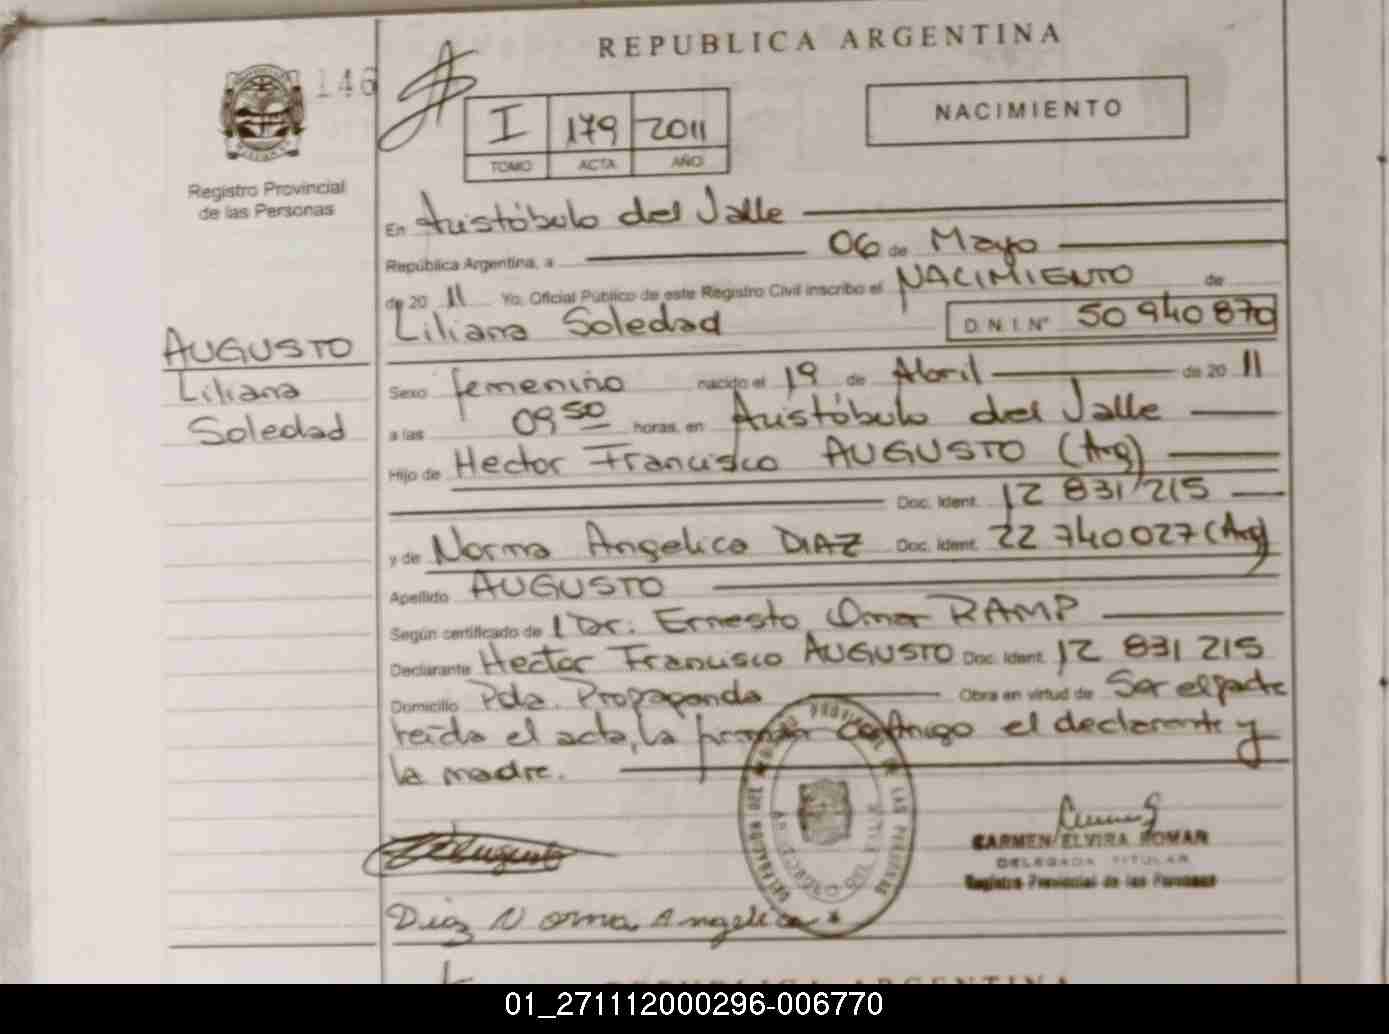 REPUBLICA ARGENTINA
146
I 179 2011
TOMO ACTA AÑO
NACIMIENTO
Registro Provincial
de las Personas
En Aristóbulo del Valle
República Argentina, a 06 de Mayo
de 20 11 Yo, Oficial Público de este Registro Civil inscribo el NACIMIENTO de
Liliana Soledad D.N.I. Nº 50 940 870
AUGUSTO
Liliana
Soledad
Sexo femenino nacido el 19 de Abril de 20 11
a las 09 50 horas, en Aristóbulo del Valle
Hijo de Hector Francisco AUGUSTO (Arg)
Doc. Ident. 12 831 215
y de Norma Angelica DIAZ Doc. Ident. 22 740027 (Arg)
Apellido AUGUSTO
Según certificado de Dr. Ernesto Omar RAMP
Declarante Hector Francisco AUGUSTO Doc. Ident. 12 831 215
Domicilio Pda. Propaganda Obra en virtud de Ser el padre
leida el acta, la firman conmigo el declarante y
la madre.
CARMEN ELVIRA ROMAR
DELEGADA TITULAR
Registro Provincial de las Personas
Diaz Norma Angelica
REPUBLICA ARGENTINA
01_271112000296-006770